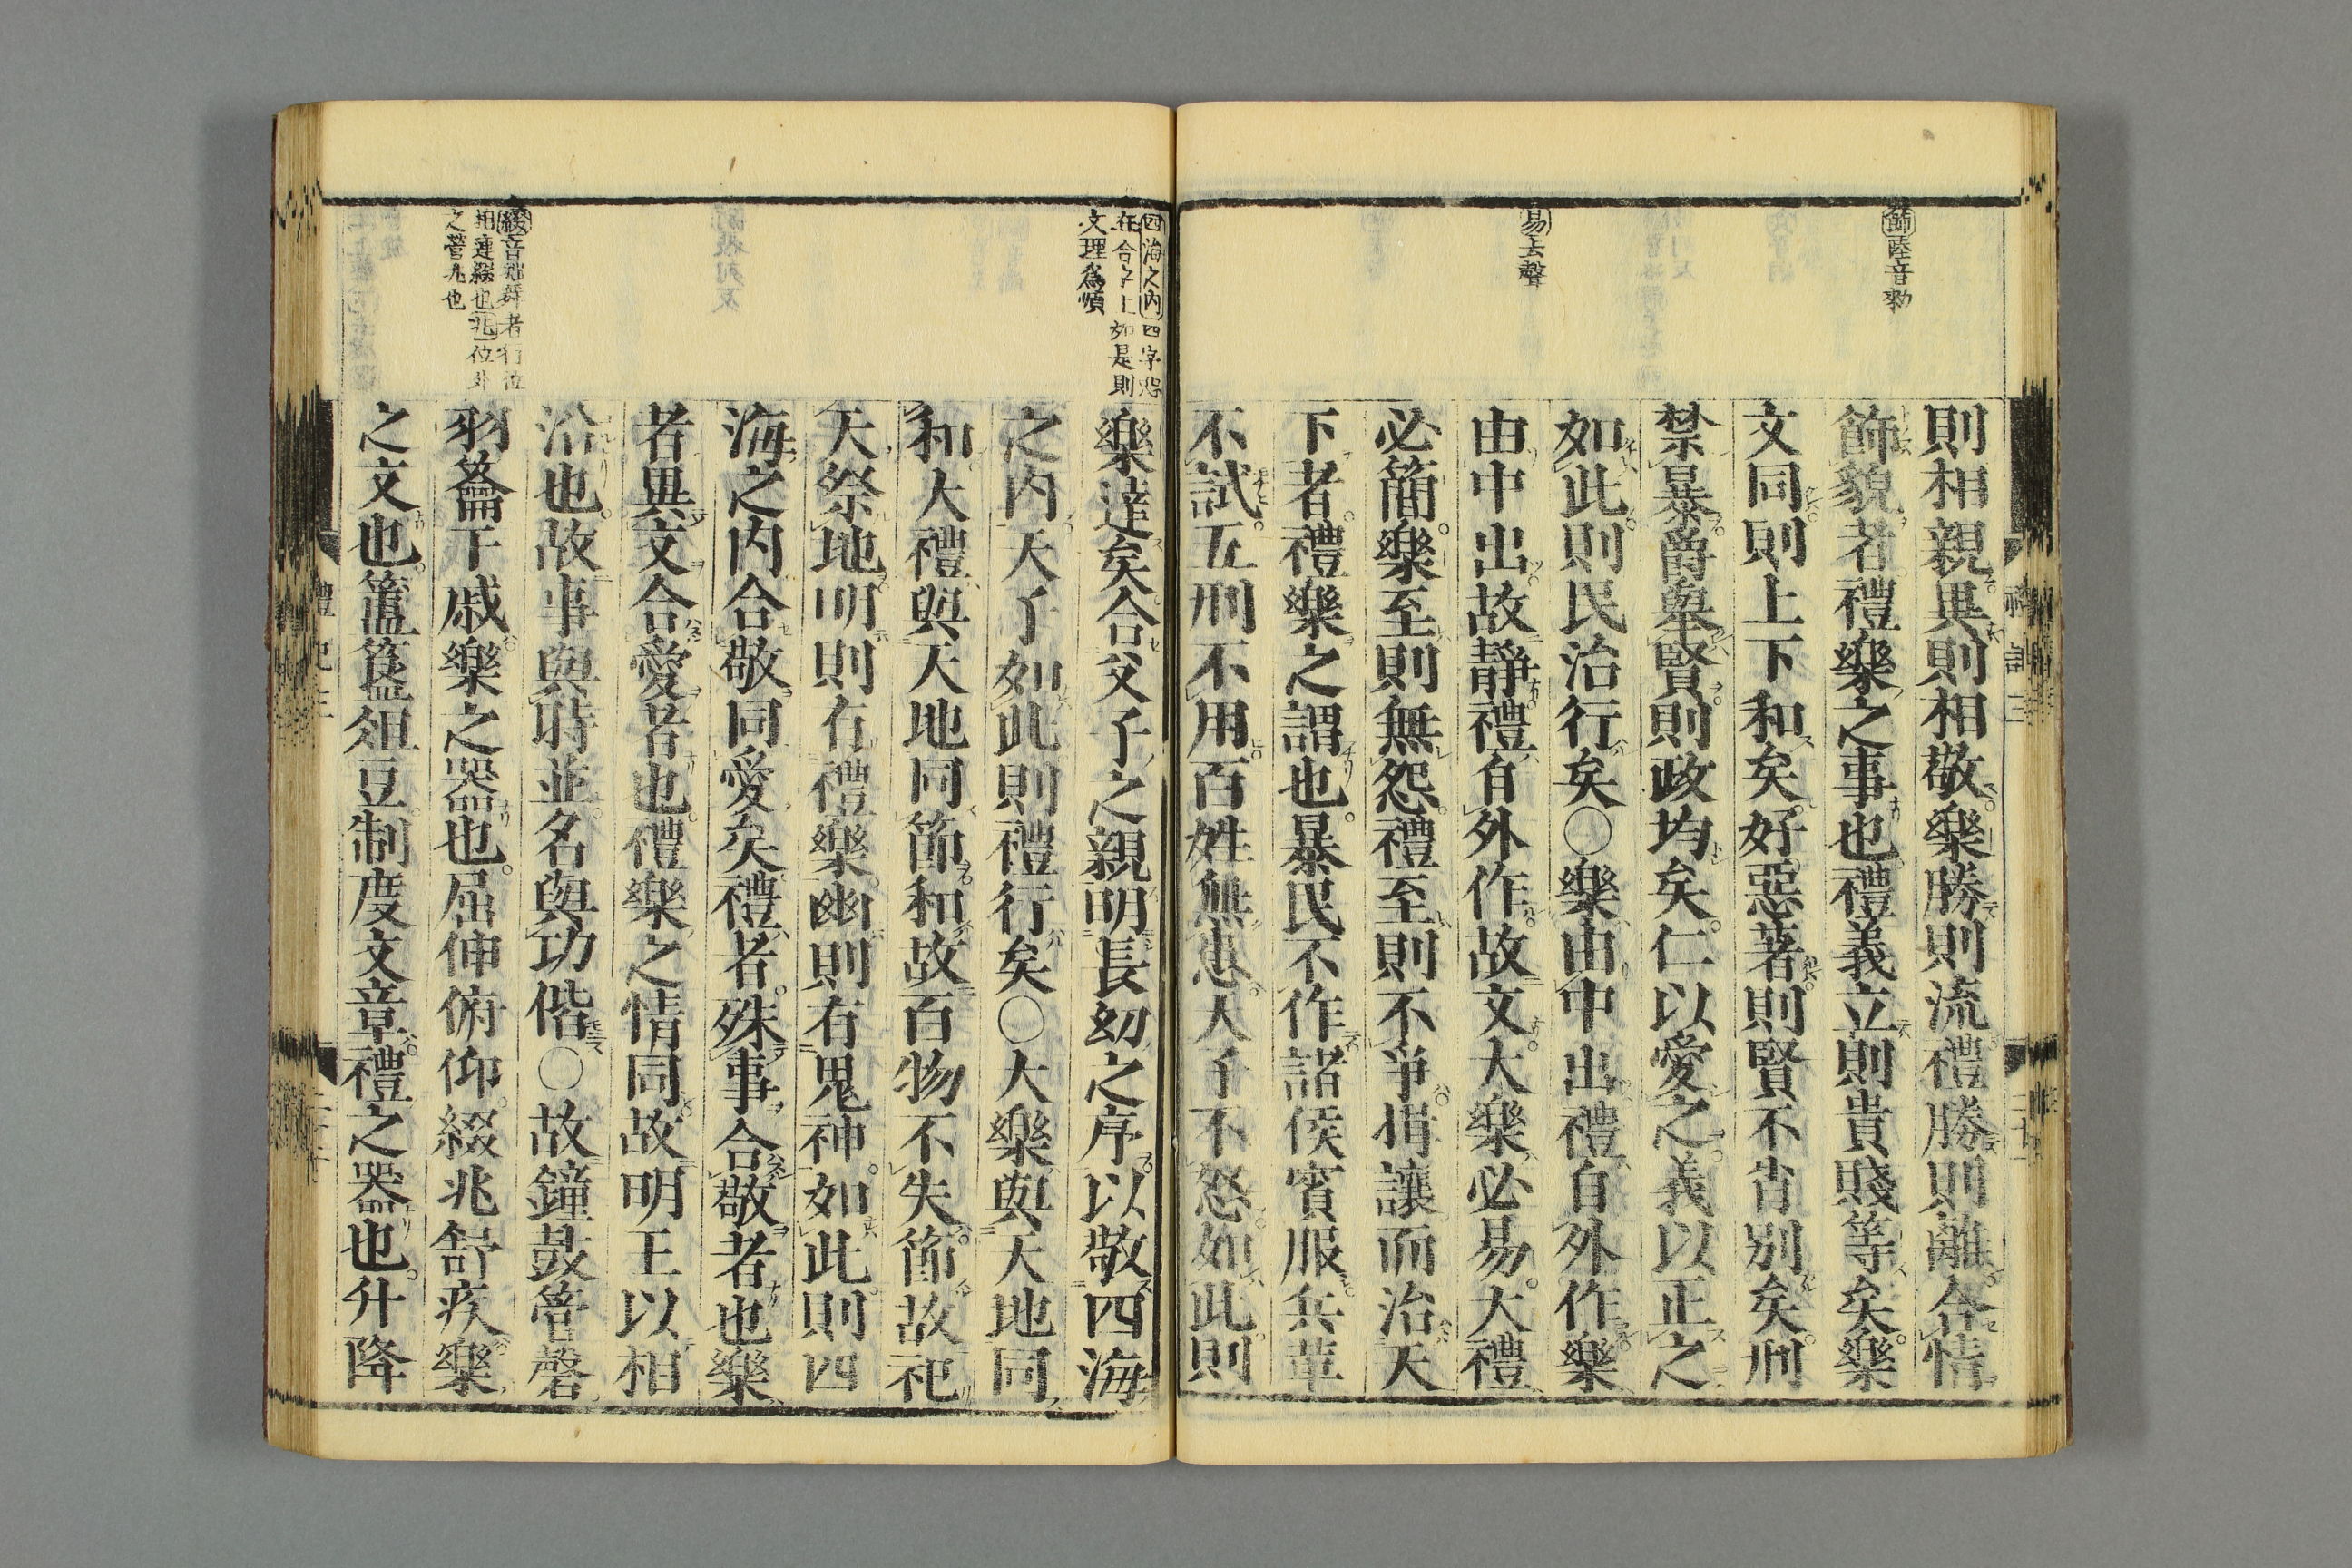 飭陸音勑
易去聲
則相親異則相敬樂勝則流禮勝則離合情
飾貌者禮樂之事也禮義立則貴賤等矣樂
文同則上下和矣好惡著則賢不肖別矣刑
禁暴爵舉賢則政均矣仁以愛之義以正之
如此則民治行矣〇樂由中出禮自外作樂
由中出故靜禮自外作故文大樂必易大禮
必簡樂至則無怨禮至則不爭揖讓而治天
下者禮樂之謂也暴民不作諸侯賓服兵革
不試五刑不用百姓無患天子不怒如此則
四海之内四字恐
在合字上如是則
文理爲順
綴音拙舞者行位
相連綴也兆位外
之營兆也
樂達矣合父子之親明長幼之序以敬四海
之内天子如此則禮行矣〇大樂與天地同
和大禮與天地同節和故百物不失節故祀
天祭地明則有禮樂幽則有鬼神如此則四
海之内合敬同愛矣禮者殊事合敬者也樂
者異文合愛者也禮樂之情同故明王以相
沿也故事與時並名與功偕〇故鐘鼓管磬
羽籥干戚樂之器也屈伸俯仰綴兆舒疾樂
之文也簠簋俎豆制度文章禮之器也升降
禮記三